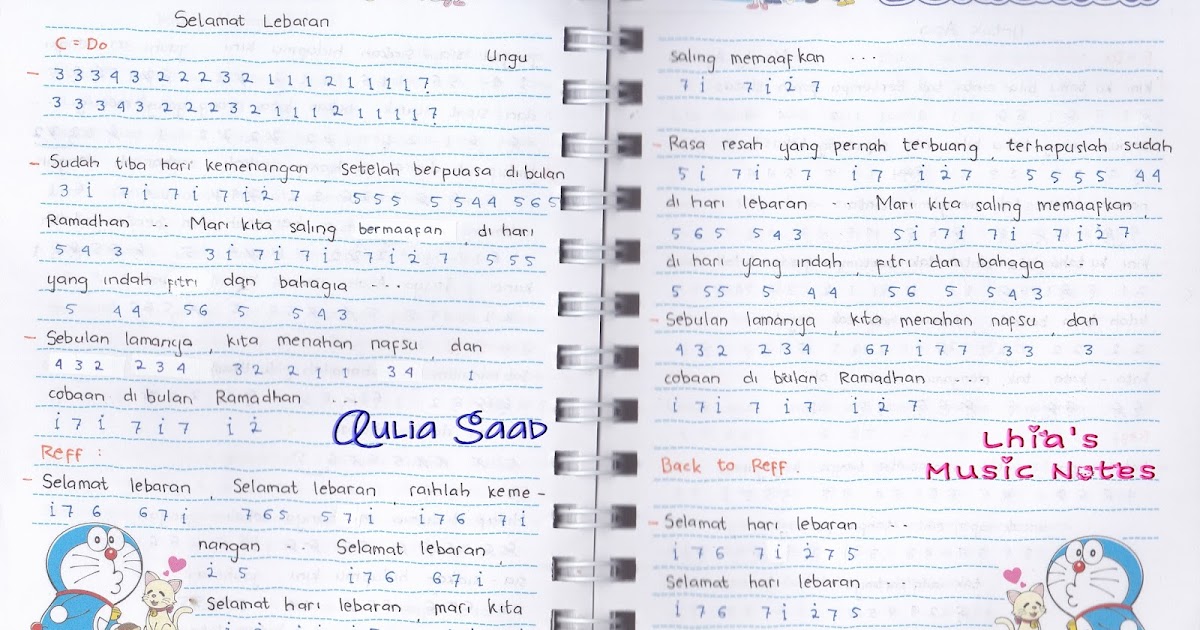 Selamat Lebaran
C = Do
Ungu
- 3 3 3 4 3 2 2 2 3 2 1 1 1 2 1 1 1 1 7̣
3 3 3 4 3 2 2 2 3 2 1 1 1 2 1 1 1 1 7̣
- Sudah tiba hari kemenangan setelah berpuasa di bulan
3 i 7 i 7 i 7 i 2̇ 7 5 5 5 5 5 4 4 5 6 5
Ramadhan ... Mari kita saling bermaafan, di hari
5 4 3 3 i 7 i 7 i 7 i 2̇ 7 5 5 5
yang indah fitri dan bahagia ...
5 4 4 5 6 5 5 4 3
- Sebulan lamanya, kita menahan nafsu, dan
4 3 2 2 3 4 3 2 2 1 1 3 4 1
cobaan di bulan Ramadhan ....
i 7 i 7 i 7 i 2̇
Aulia Saab
Reff :
- Selamat lebaran, Selamat lebaran, raihlah keme -
i 7 6 6 7 i 7 6 5 5 7 i i 7 6 7 i
nangan ... Selamat lebaran,
2̇ 5 i 7 6 6 7 i
Selamat hari lebaran, mari kita
saling memaafkan ...
7 i 7 i 2̇ 7
- Rasa resah yang pernah terbuang, terhapuslah sudah
5 i 7 i 7 i 7 i 2̇ 7 5 5 5 5 4 4
di hari lebaran ... Mari kita saling memaafkan,
5 6 5 5 4 3 5 i 7 i 7 i 7 i 2̇ 7
di hari yang indah, fitri dan bahagia ...
5 5 5 5 4 4 5 6 5 5 4 3
- Sebulan lamanya, kita menahan nafsu, dan
4 3 2 2 3 4 6 7 i 7 7 3 3 3
cobaan di bulan Ramadhan ....
i 7 i 7 i 7 i 2̇ 7
Lhia's
Music Notes
Back to Reff :
- Selamat hari lebaran ...
i 7 6 7 i 2̇ 7 5
Selamat hari lebaran ...
i 7 6 7 i 2̇ 7 5